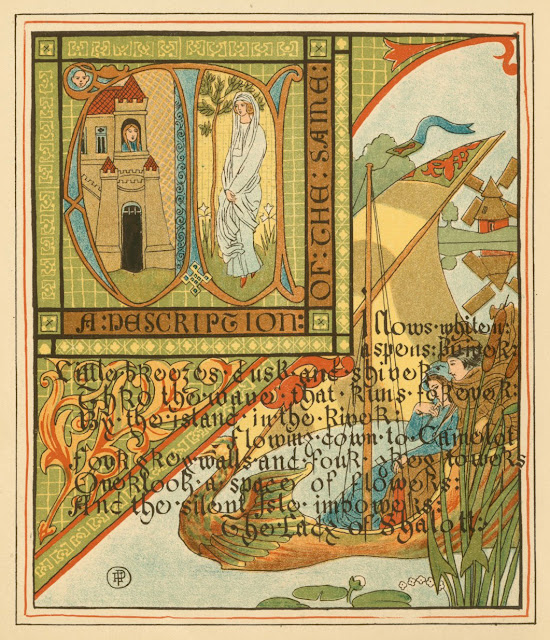 A:DESCRIPTION:
OF:THE:SAME:
Willows·whiten:
aspens:quiver:
Little·breezes·dusk·and·shiver
Thro·the·wave:that·runs·forever:
By·the·island·in·the·river:
Flowing·down·to·Camelot
Four·grey·walls·and·four·grey·towers
Overlook·a·space·of·flowers:
And·the·silent·isle·imbowers:
The·Lady·of·Shalott: